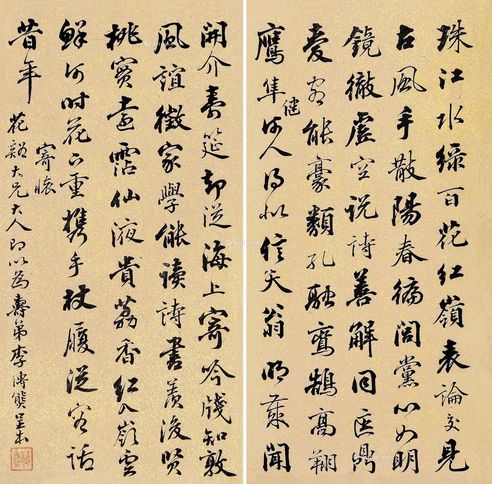 珠江水綠百花紅嶺表論交見
古風手散陽春徧閭黨心如明
鏡徹虛空說詩善解同匡鼎
愛客能豪類孔融鸞鵠高翔
鷹隼健何人得似信天翁明聞
開介壽筵却從海上寄吟牋知敦
風誼徵家學能讀詩書羨後賢
桃實遠霑仙液貴荔香紅入嶺雲
鮮何時花下重攜手杖履從容話
昔年
寄懷
花谿大兄大人即以為壽弟李傳熊呈